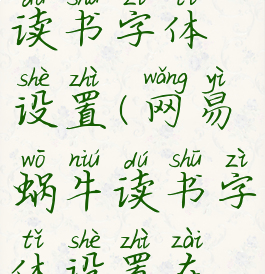 dú shū zì tǐ
读书字体
shè zhì wǎng yì
设置(网易
wō niú dú shū zì
蜗牛读书字
tǐ shè zhì zài
体设置在